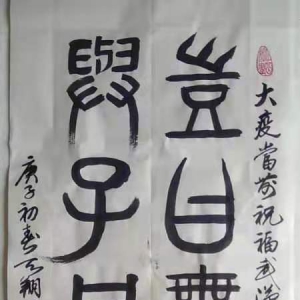 大疫當前祝福武
豈曰無
與子
庚子初春